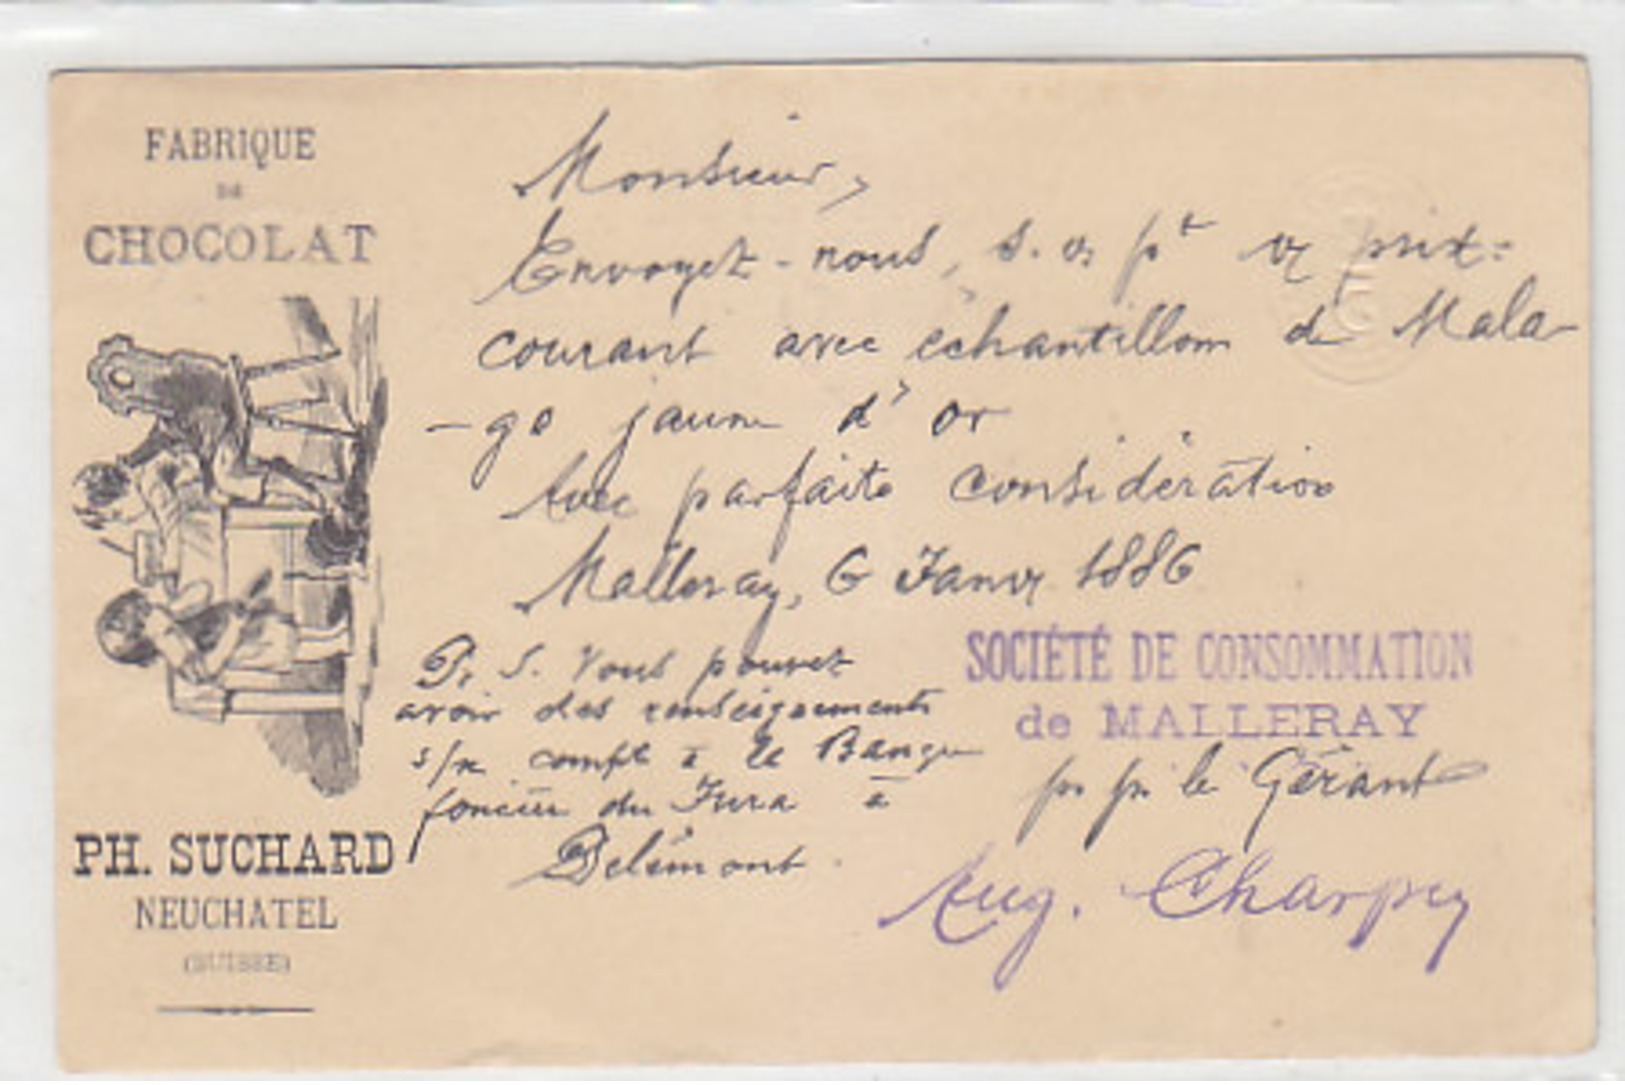 FABRIQUE
DE
CHOCOLAT
PH. SUCHARD
NEUCHATEL
(SUISSE)
Monsieur,
Envoyez-nous, s. v. pt vr prix-
courant avec échantillon de Mala-
-ga jaune d'or
Avec parfaite considération
Malleray, 6 Janvr 1886
P. S. Vous pouvez
avoir des renseignements
s/n compte à la Banque
foncière du Jura à
Delémont.
SOCIÉTÉ DE CONSOMMATION
de MALLERAY
pr pr le Gérant
Aug. Charpey